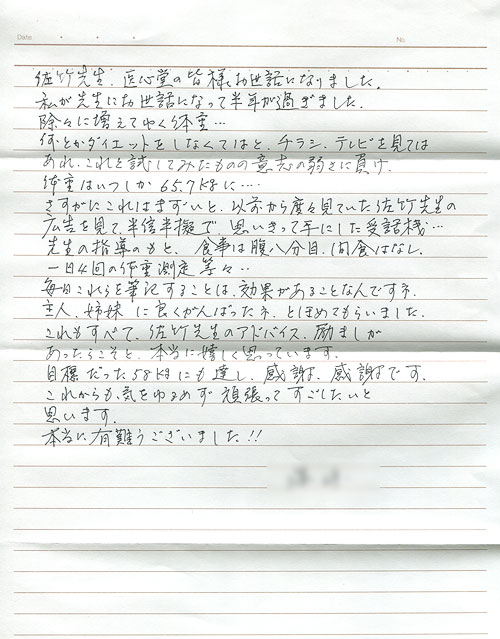 Date
No.
佐竹先生、医心堂の皆様お世話になりました。
私が先生にお世話になって半年が過ぎました。
除々に増えてゆく体重…
何とかダイエットをしなくてはと、チラシ、テレビを見ては
あれ、これと試してみたものの意志の弱さに負け、
体重はいつしか65.7kgに….
さすがにこれはまずいと、以前から度々見ていた佐竹先生の
広告を見て、半信半擬で、思いきって手にした受話機…
先生の指導のもと、食事は腹八分目、間食はなし、
一日4回の体重測定等々…
毎日これらを筆記することは、効果があることなんですネ。
主人、姉妹に良くがんばったネ。とほめてもらいました。
これもすべて、佐竹先生のアドバイス、励ましが
あったらこそと、本当に嬉しく思っています。
目標だった58kgにも達し、感謝、感謝です。
これからも、気をゆるめず頑張ってすごしたいと
思います。
本当に有難うございました!!